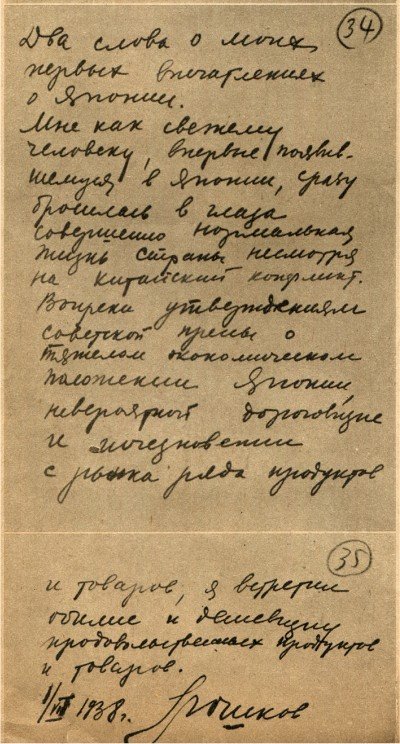 34
Два слова о моих
первых впечатлениях
о Японии.
Мне как свежему
человеку, впервые появив-
шемуся в Японии, сразу
бросилась в глаза
совершенно нормальная
жизнь страны несмотря
на китайский конфликт.
Вопреки утверждениям
советской прессы о
тяжелом экономическом
положении Японии,
невероятной дороговизне
и исчезновении
с рынка ряда продуктов
35
и товаров, я встретил
обилие и дешевизну
продовольственных продуктов
и товаров.
1938г.